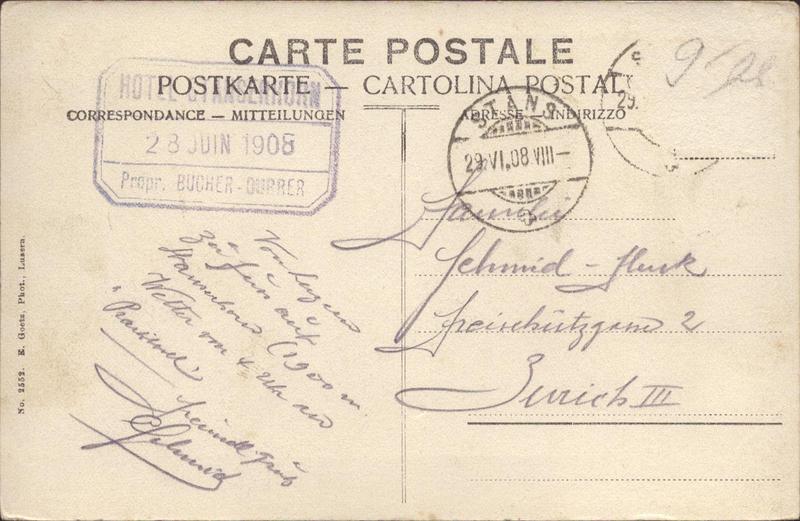 CARTE POSTALE
POSTKARTE — CARTOLINA POSTAL
CORRESPONDANCE — MITTEILUNGEN
ADRESSE — INDIRIZZO
HOTEL STANSERHORN
28 JUIN 1908
Propr. BUCHER-DURRER
STANS
29.VI.08.VIII—
29.
Familie
Schmid-
2
Zürich III
Von Luzern
zu Fuss auf
Stanserhorn (1900 m.
Wetter von 4 Uhr an
Prachtvoll
freundl. Gruss
Schmid
No. 2552. E. Goetz, Phot., Luzern.